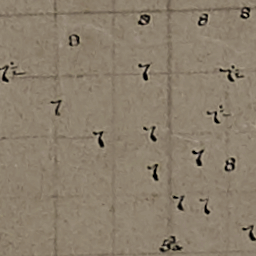 8 8 8
8
7½ 7 7½
7 7½
7 7
7 7 8
7 7
7